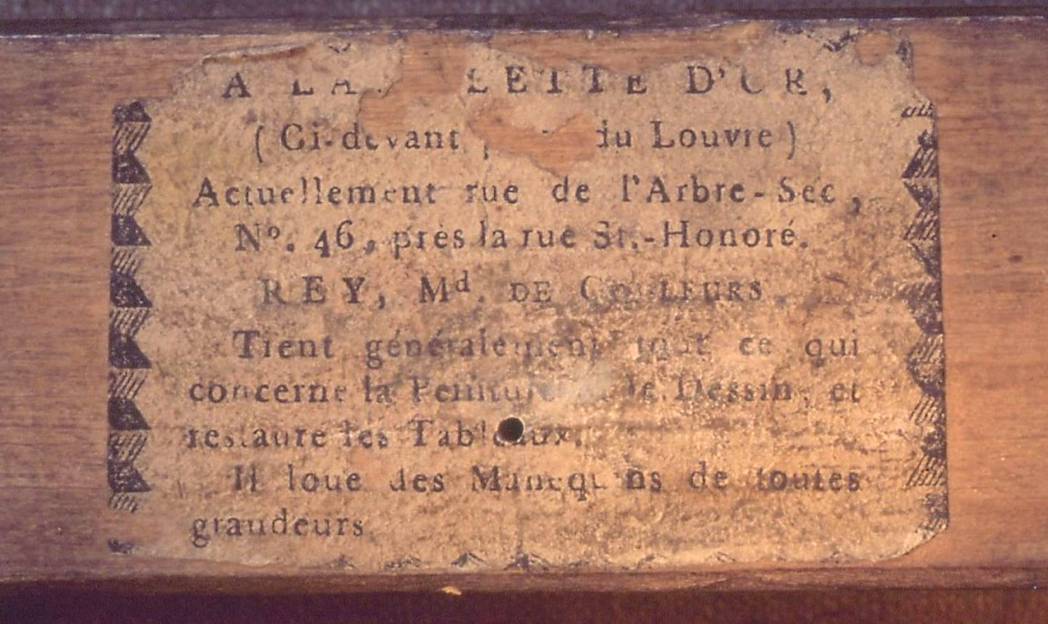 A LA PALETTE D'OR,
( Ci-devant du Louvre )
Actuellement rue de l'Arbre-Sec,
Nº. 46, près la rue St.-Honoré.
REY, Md. DE COULEURS.
Tient généralement tout ce qui
concerne la Peinture le Dessin, et
restaure les Tableaux.
Il loue des Manequins de toutes
grandeurs